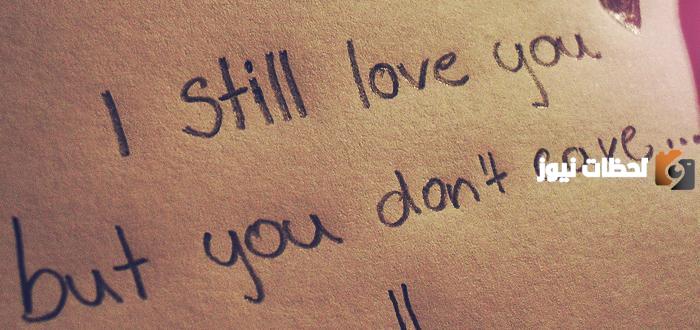 I still love you
but you don't care...
لحظات نيوز